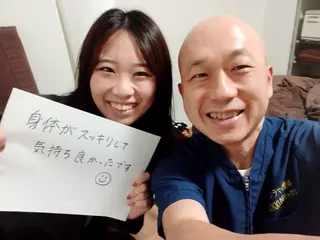 身体がスッキリして
気持ち良かったです